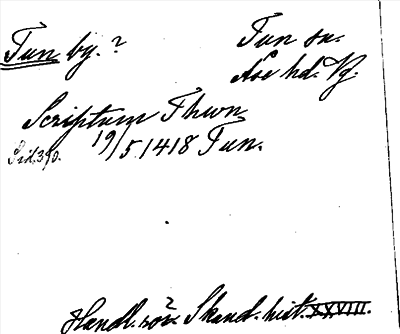 Tun by.?
Tun sn.
Åse hd. Vg.
Scriptum Thwn
19/5 1418 Tun.
Sid. 390.
Handl. rör. Skand. hist. XXVIII.